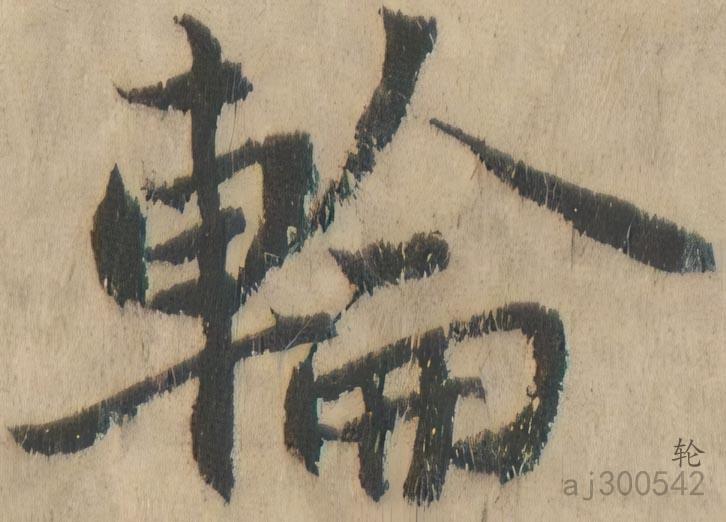 輪
轮
aj300542